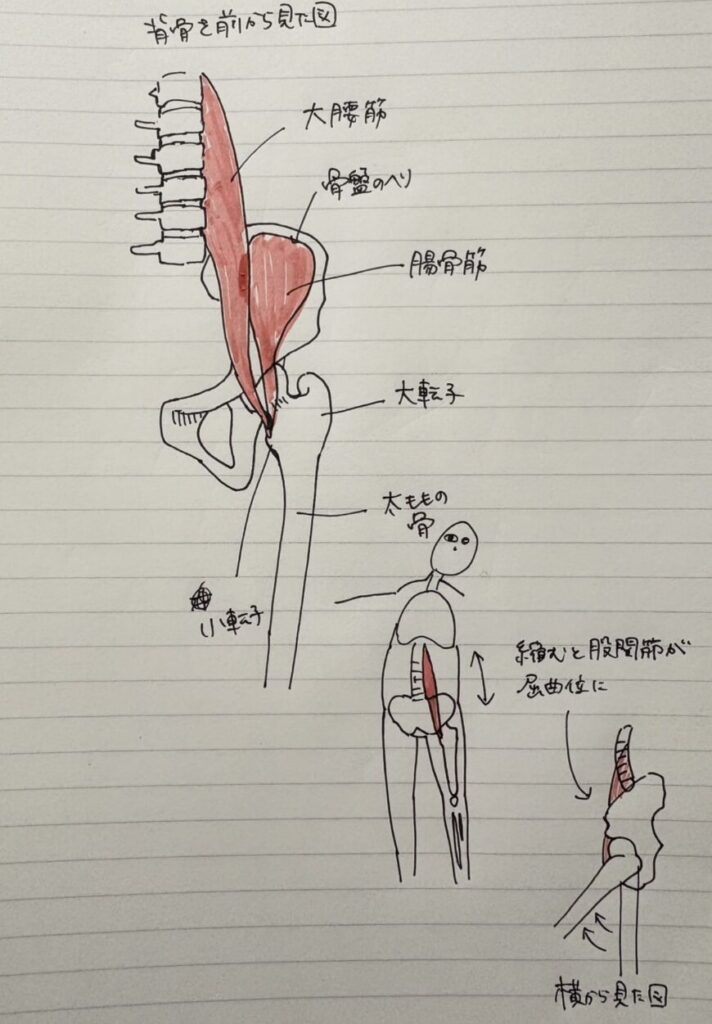 背骨を前から見た図
大腰筋
骨盤のヘリ
腸骨筋
大転子
太ももの
骨
小転子
縮むと股関節が
屈曲位に
横から見た図